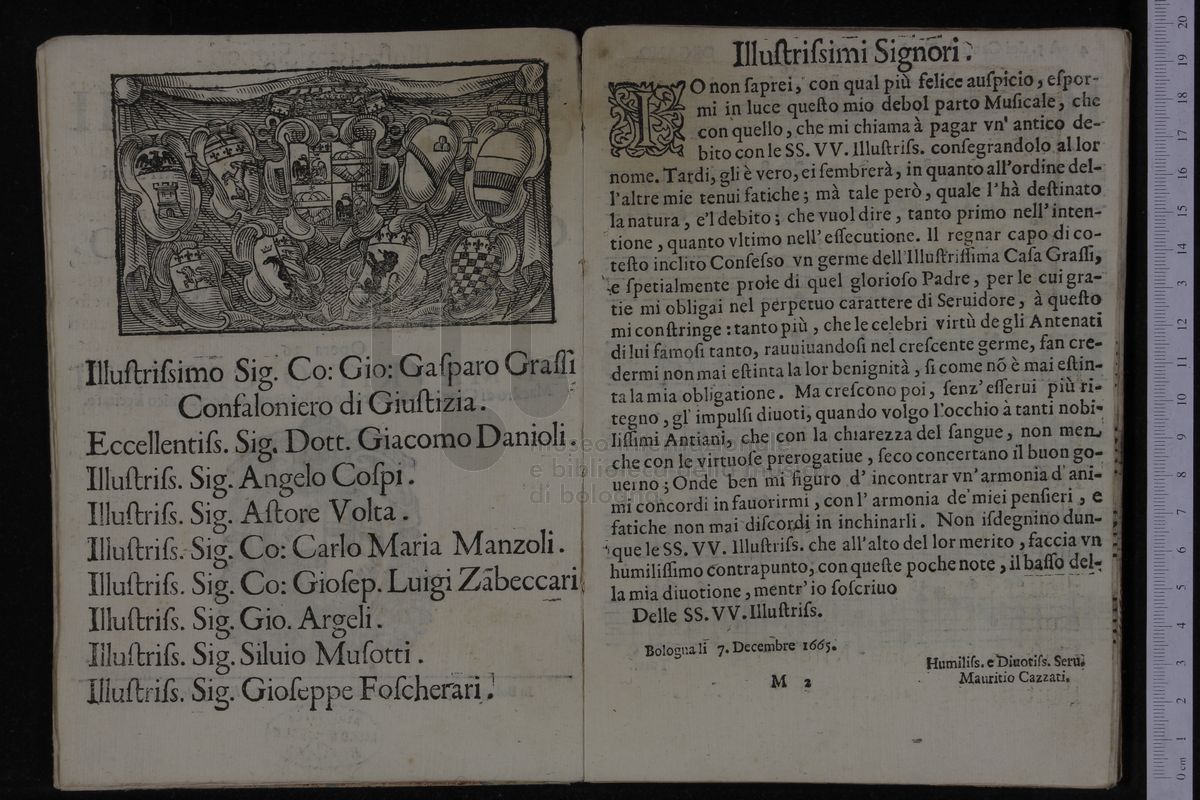 Illuſtriſsimo Sig. Co: Gio: Gaſparo Graſſi
Confaloniero di Giuſtizia.
Eccellentiſs. Sig. Dott. Giacomo Danioli.
Illuſtriſs. Sig. Angelo Coſpi.
Illuſtriſs. Sig. Aſtore Volta.
Illuſtriſs. Sig. Co: Carlo Maria Manzoli.
Illuſtriſs. Sig. Co: Gioſep. Luigi Zãbeccari
Illuſtriſs. Sig. Gio. Argeli.
Illuſtriſs. Sig. Siluio Muſotti.
Illuſtriſs. Sig. Gioſeppe Foſcherari.
Illuſtriſsimi Signori.
IO non ſaprei, con qual più felice auſpicio, eſpor-
mi in luce queſto mio debol parto Muſicale, che
con quello, che mi chiama à pagar vn' antico de-
bito con le SS. VV. Illuſtriſs. conſegrandolo al lor
nome. Tardi, gli è vero, ei ſembrerà, in quanto all'ordine del-
l'altre mie tenui fatiche; mà tale però, quale l'hà deſtinato
la natura, e'l debito; che vuol dire, tanto primo nell'inten-
tione, quanto vltimo nell'eſſecutione. Il regnar capo di co-
teſto inclito Conſeſso vn germe dell'Illuſtriſſima Caſa Graſſi,
e ſpetialmente prole di quel glorioſo Padre, per le cui gra-
tie mi obligai nel perpetuo carattere di Seruidore, à queſto
mi conſtringe: tanto più, che le celebri virtù de gli Antenati
di lui famoſi tanto, rauuiuandoſi nel creſcente germe, fan cre-
dermi non mai eſtinta la lor benignità, ſi come nõ è mai eſtin-
ta la mia obligatione. Ma creſcono poi, ſenz' eſſerui più ri-
tegno, gl' impulſi diuoti, quando volgo l'occhio à tanti nobi-
liſſimi Antiani, che con la chiarezza del ſangue, non men
che con le virtuoſe prerogatiue, ſeco concertano il buon go-
uerno; Onde ben mi figuro d' incontrar vn'armonia d' ani-
mi concordi in fauorirmi, con l' armonia de' miei penſieri, e
fatiche non mai diſcordi in inchinarli. Non iſdegnino dun-
que le SS. VV. Illuſtriſs. che all'alto del lor merito, faccia vn
humiliſſimo contrapunto, con queſte poche note, il baſſo del-
la mia diuotione, mentr' io ſoſcriuo
Delle SS. VV. Illuſtriſs.
Bologna li 7. Decembre 1665.
Humiliſs. e Diuotiſs. Seru.
Mauritio Cazzati.
M 2
museo internazionale
e biblioteca della musica
di bologna